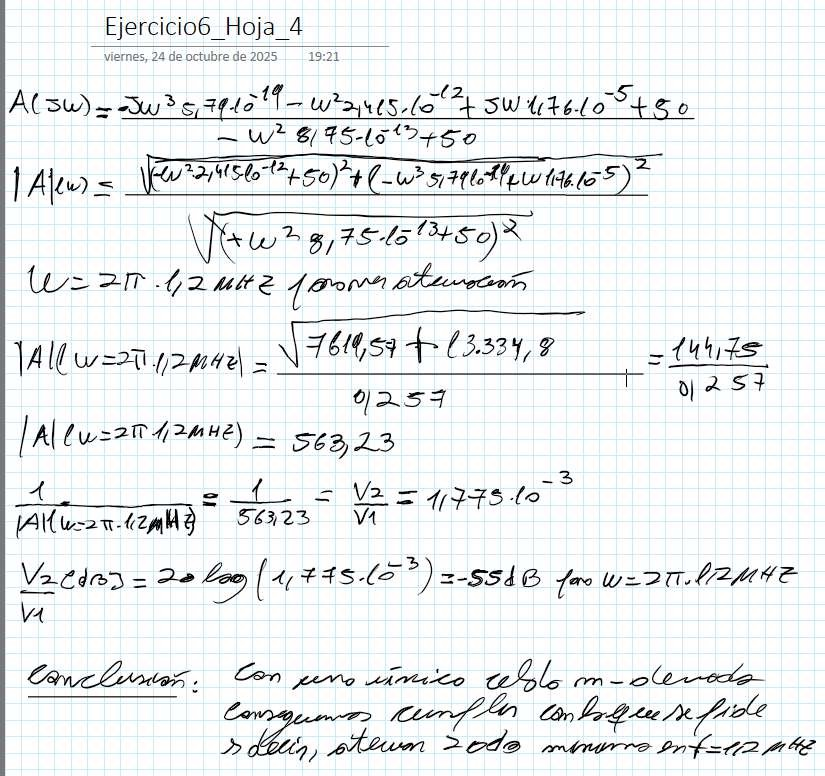 Ejercicio6_Hoja_4
viernes, 24 de octubre de 2025 19:21
A(jw) = -jw³ 5,79·10⁻¹⁹ - w² 2,415·10⁻¹² + jw 1,176·10⁻⁵ + 50
- w² 8,75·10⁻¹³ + 50
|A|(w) = √(-w² 2,415·10⁻¹² + 50)² + (-w³ 5,79·10⁻¹⁹ + w 1,176·10⁻⁵)²
√(+w² 8,75·10⁻¹³ + 50)²
w = 2π·1,2 MHZ atenuación
|A|(w=2π·1,2MHZ) = √7619,57 + 13.334,8 = 144,75
0,257 0,257
|A|(w=2π·1,2MHZ) = 563,23
1 = 1 = V2 = 1,775·10⁻³
|A|(w=2π·1,2MHZ) 563,23 V1
V2 [dB] = 20 log (1,775·10⁻³) = -55dB para w=2π·1,2MHZ
V1
Conclusión: Con una única célula m-derivada
conseguimos cumplir con lo que se pide
es decir, atenuar 20db mínimo en f=1,2MHZ